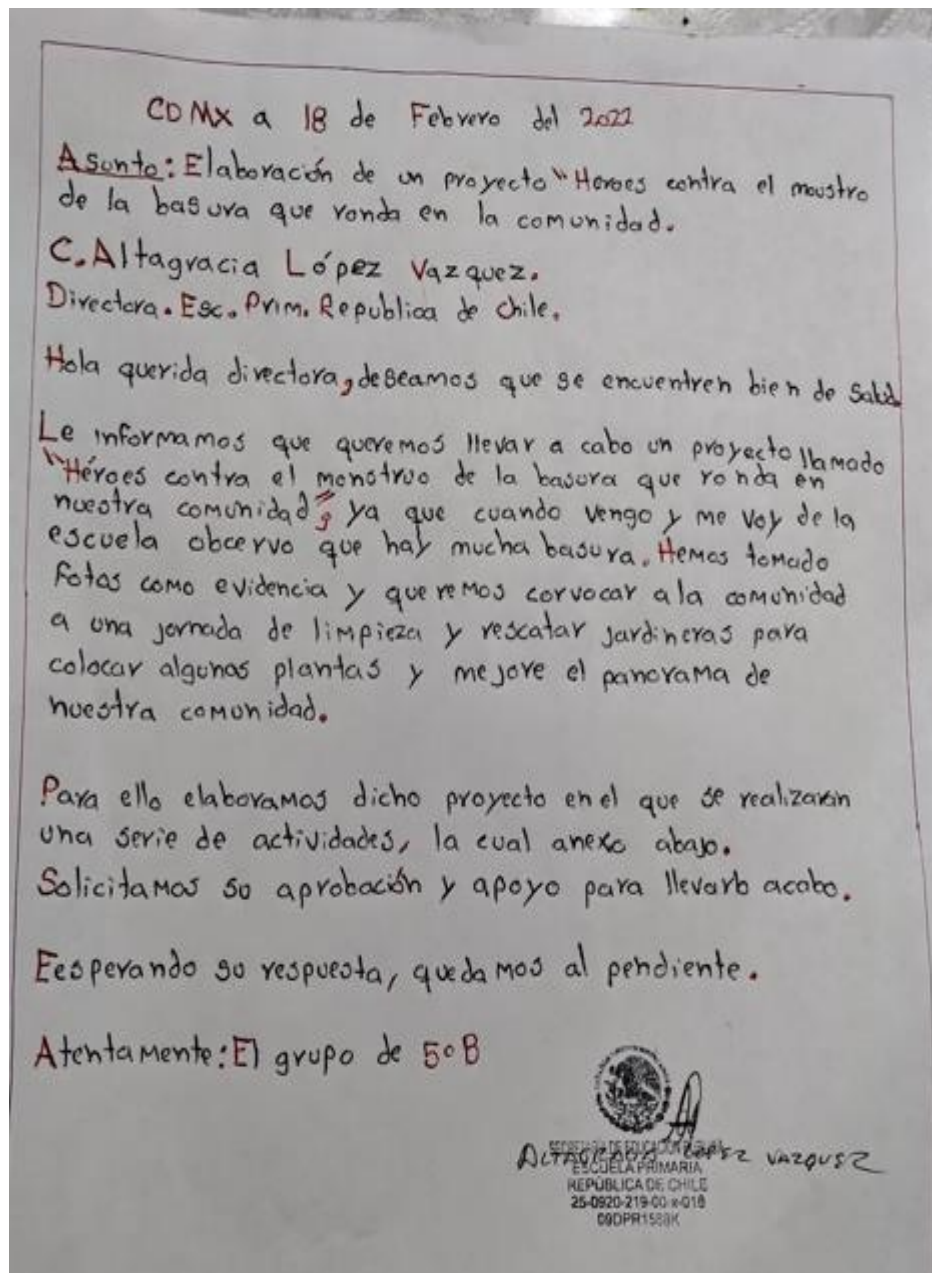 CDMX a 18 de Febrero del 2022
Asunto: Elaboración de un proyecto "Heroes contra el moustro
de la basura que ronda en la comunidad.
C. Altagracia López Vazquez.
Directora. Esc. Prim. Republica de Chile.
Hola querida directora, deseamos que se encuentren bien de Salud.
Le informamos que queremos llevar a cabo un proyecto llamado
"Héroes contra el monstruo de la basura que ronda en
nuestra comunidad", ya que cuando vengo y me voy de la
escuela obcervo que hay mucha basura. Hemos tomado
fotos como evidencia y queremos corvocar a la comunidad
a una jornada de limpieza y rescatar jardineras para
colocar algunas plantas y mejore el panorama de
nuestra comunidad.
Para ello elaboramos dicho proyecto en el que se realizarán
una serie de actividades, la cual anexo abajo.
Solicitamos su aprobación y apoyo para llevarlo acabo.
Eesperando su respuesta, quedamos al pendiente.
Atentamente: El grupo de 5°B
ALTAGRACIA LOPEZ VAZQUEZ
SECRETARÍA DE EDUCACIÓN PÚBLICA
ESCUELA PRIMARIA
REPÚBLICA DE CHILE
25-0920-219-00-x-018
09DPR1588K